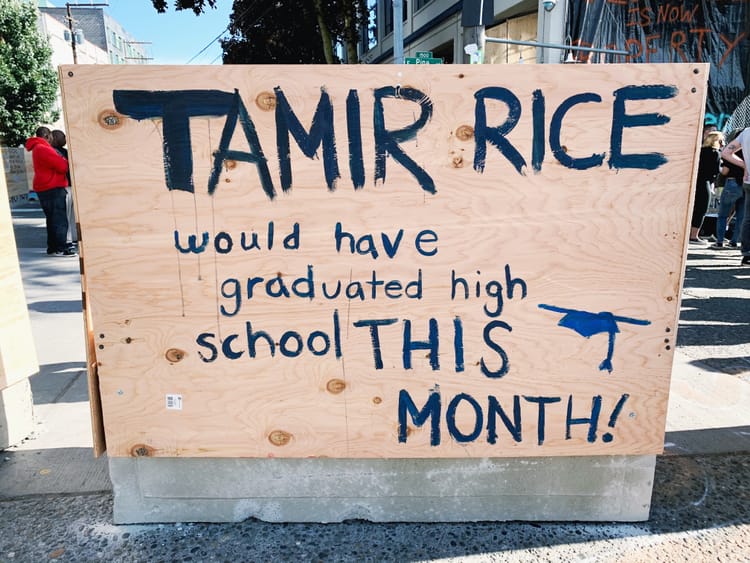 IS NOW
Pine
TAMIR RICE
would have
graduated high
school THIS
MONTH!